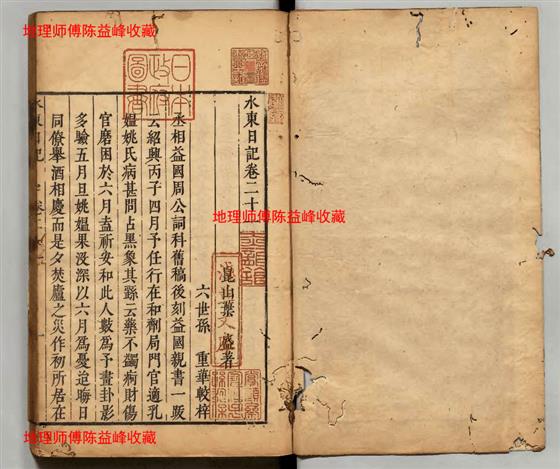 地理师傅陈益峰收藏
日本政府圖書
水東日記卷二十
崑山葉 盛著
六世孫 重華較梓
丞相益國周公詞科舊稿後刻益國親書一跋
云紹興丙子四月予任行在和劑局門官適孔
媼姚氏病甚問占黑象其繇云藥不蠲痾財傷
官磨困於六月盍祈安和此人數為予畫卦影
多驗五月旦姚媼果没深以六月為憂迨晦日
同僚舉酒相慶而是夕焚廬之災作初所居在
水東日記
地理师傅陈益峰收藏
地理师傅陈益峰收藏